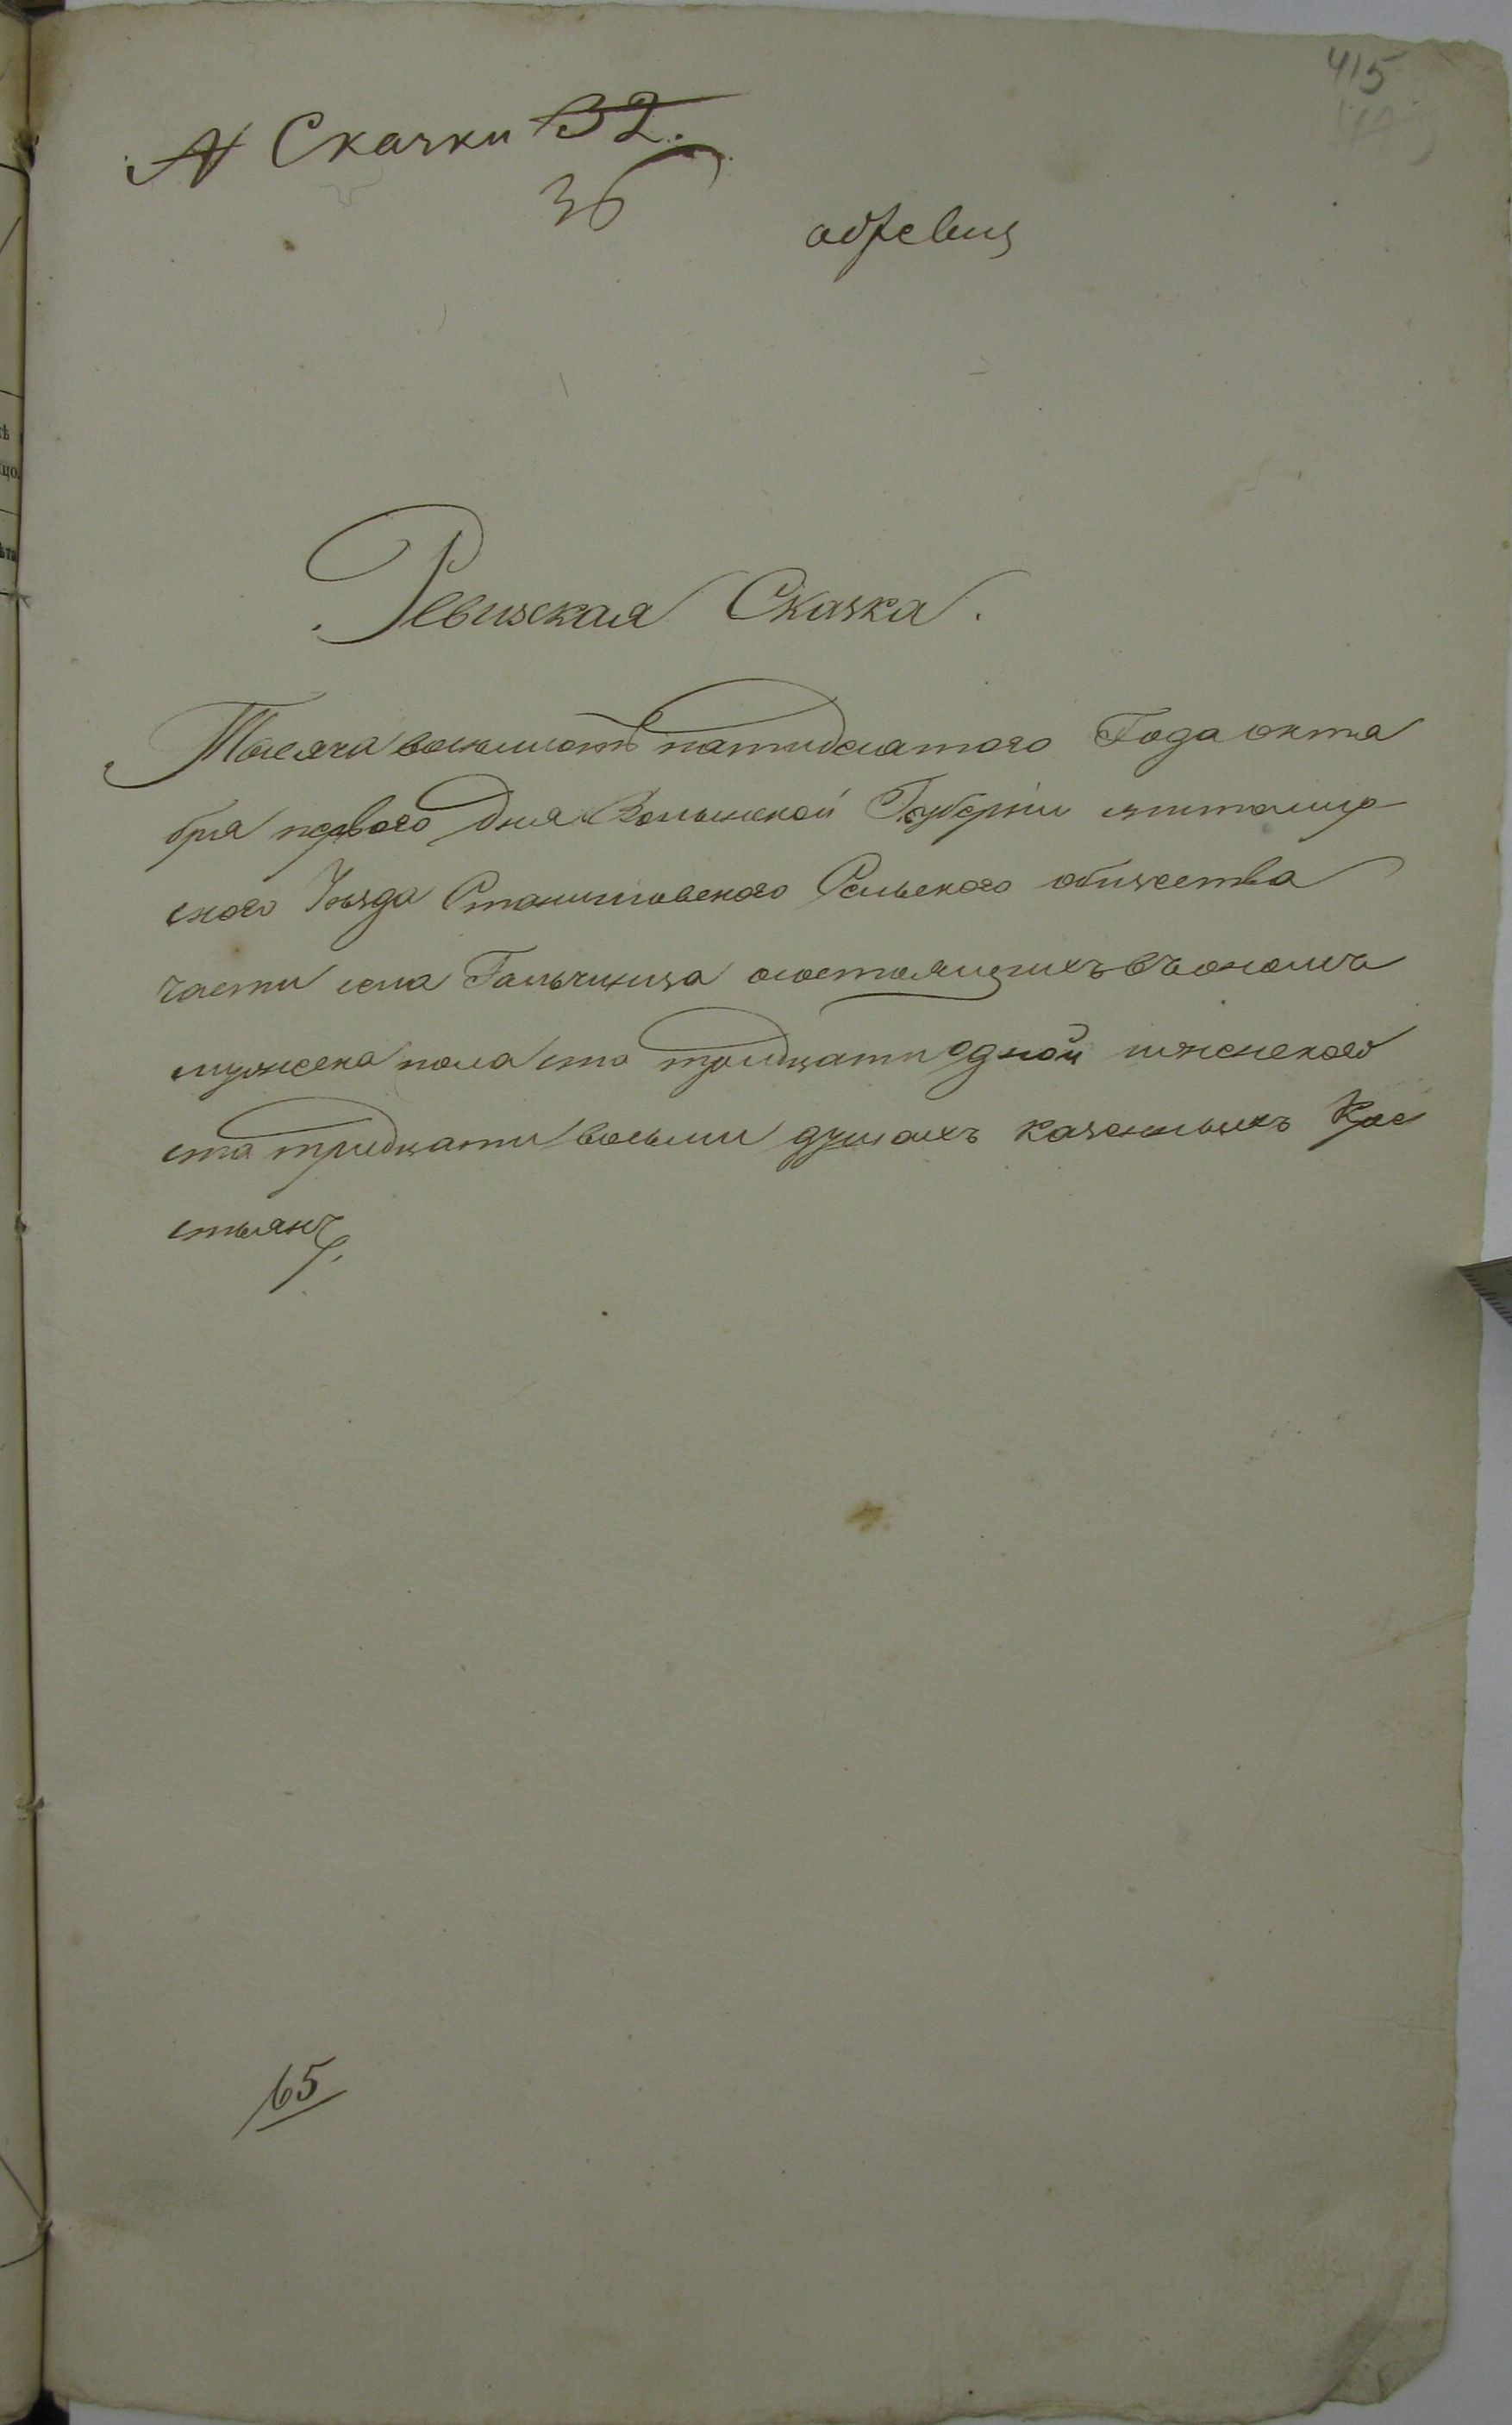 415
№ Сказки 32.
36
Ревизская Сказка.
Тысяча восымсотъ пятидесятого Года октя
бря первого дня Волынской Губернии житомир
ского Уѣзда Станишовского Сельского общества
части села Гальчинца состоящихъ въ ономъ
мужеска пола сто тридцати одной и женского
ста тридцати восьми душахъ казенныхъ Кре
стьянъ,
65